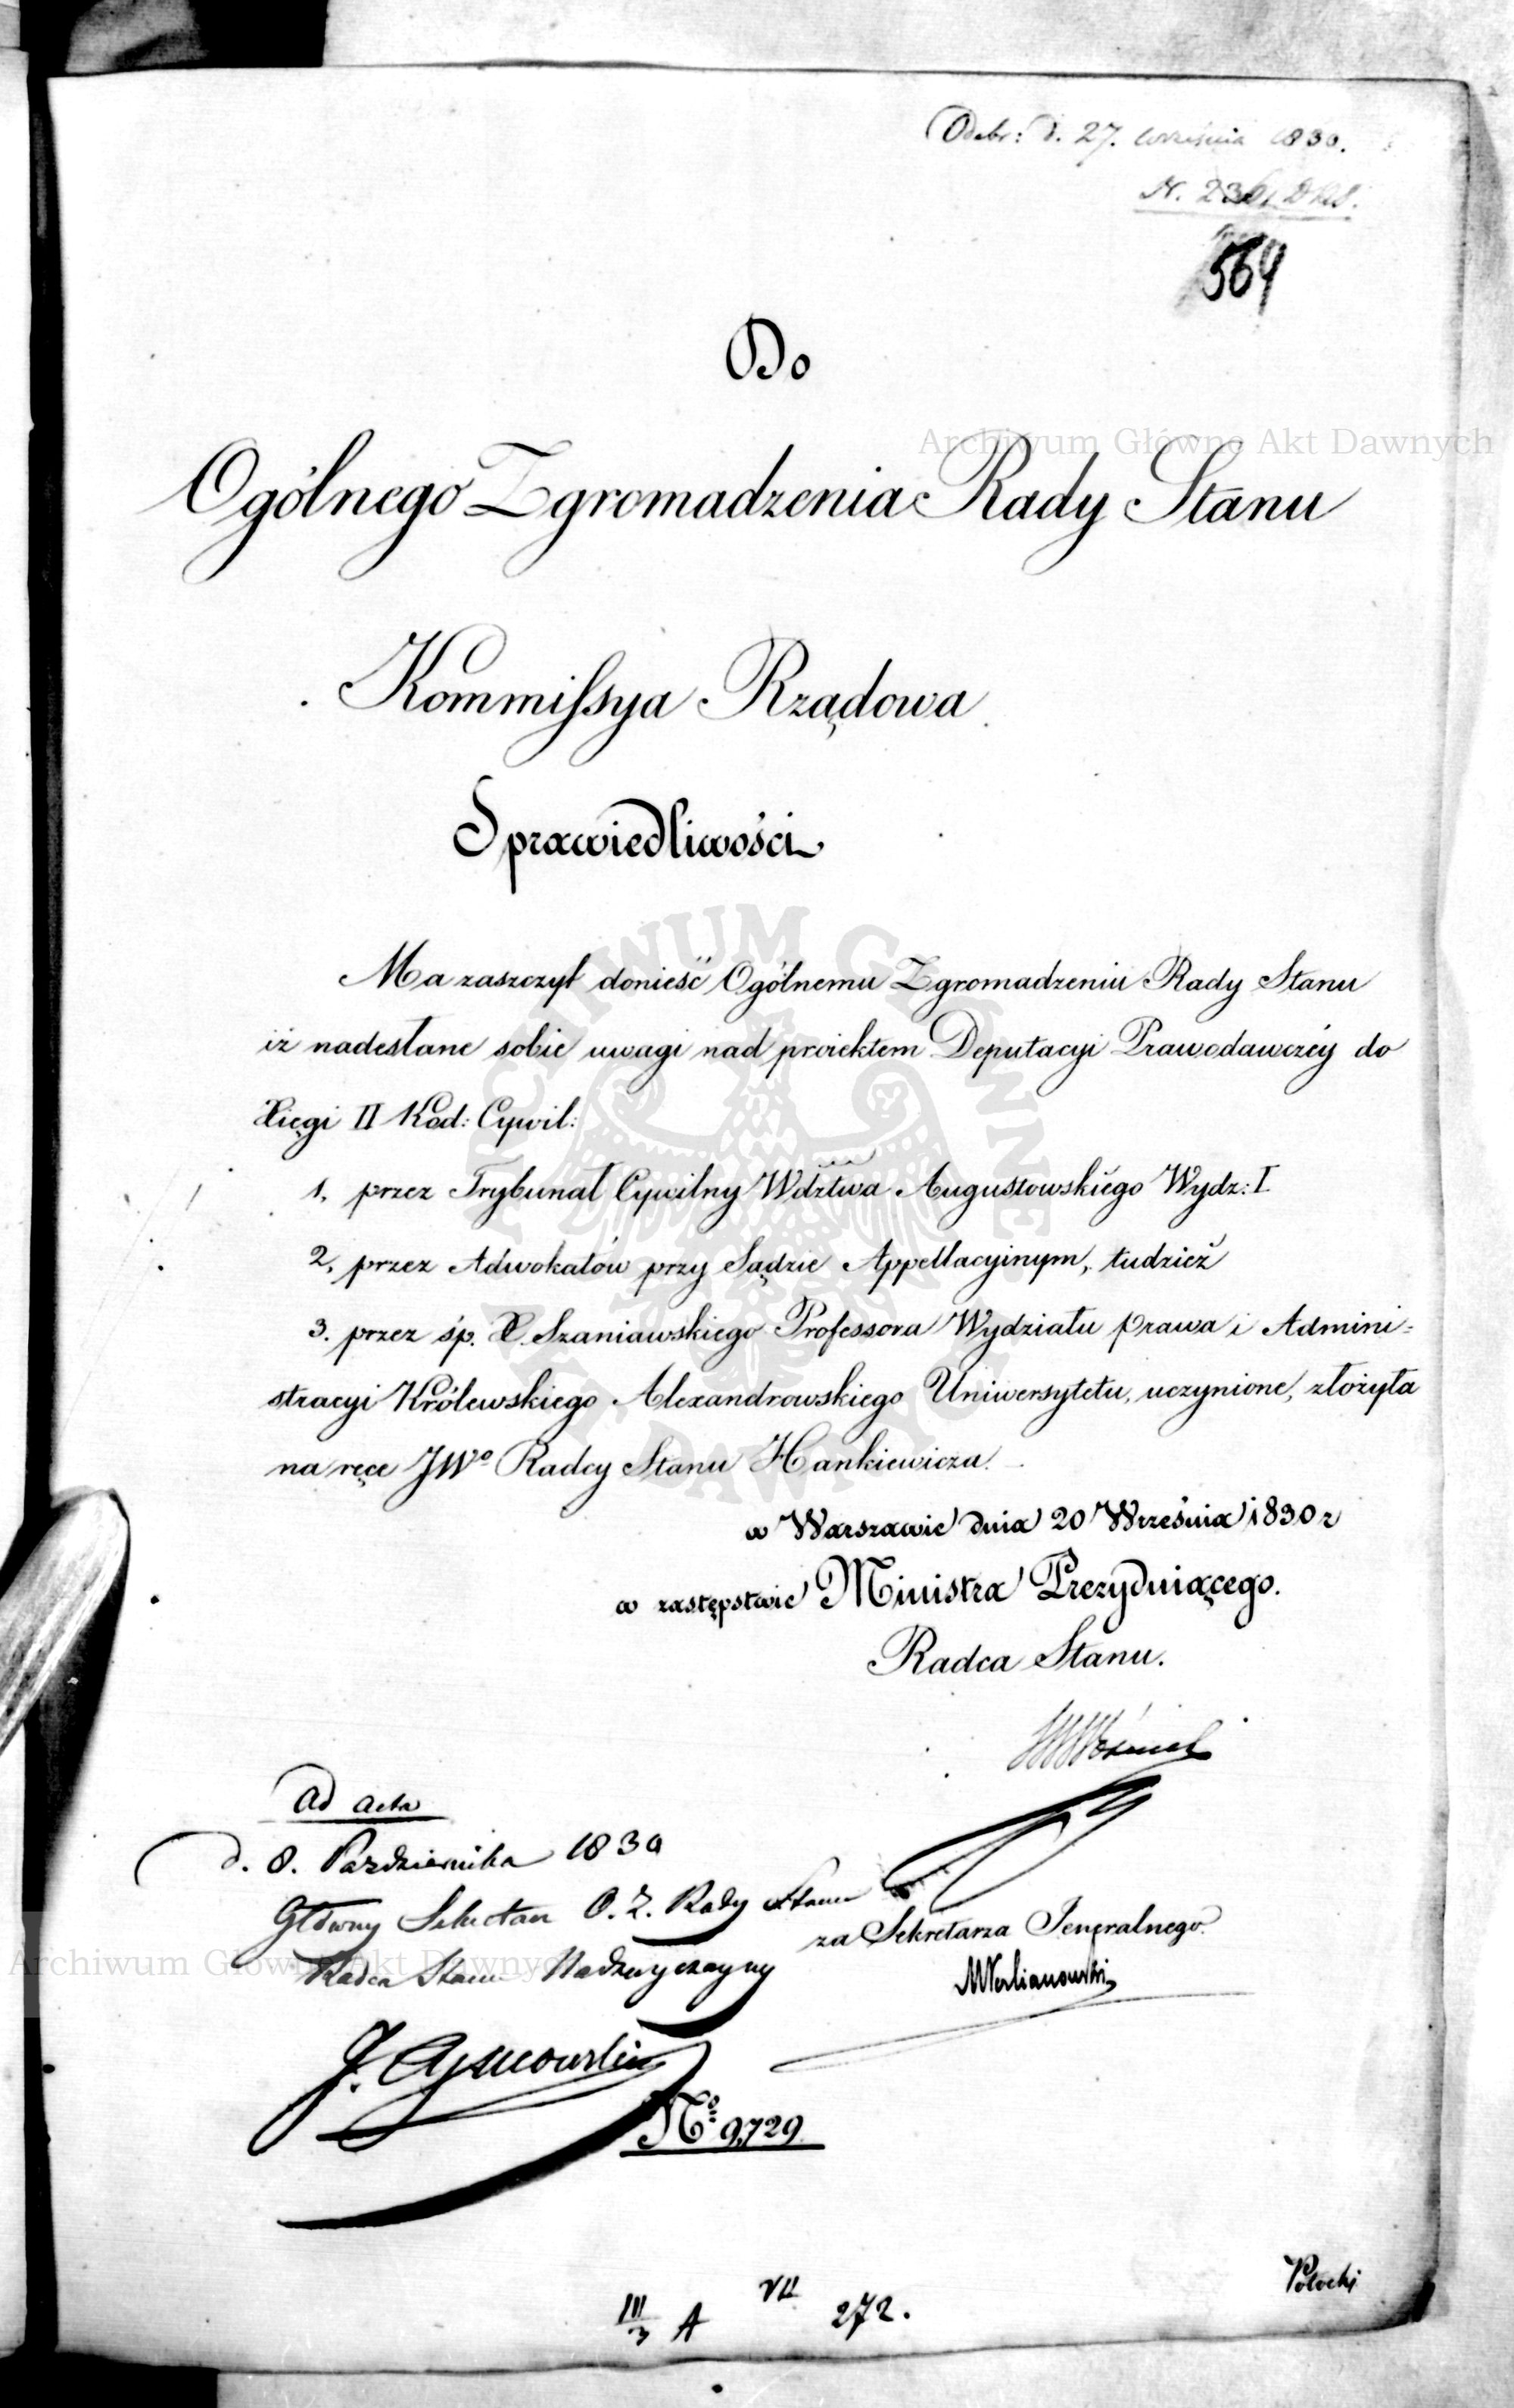 Odebr: d. 27. września 1830.
564
Do
Ogólnego Zgromadzenia Rady Stanu
Kommissya Rządowa
Sprawiedliwości
Ma zaszczyt donieść Ogólnemu Zgromadzeniu Rady Stanu
iż nadesłane sobie uwagi nad proiektem Deputacyi Prawodawczéy do
Xięgi II Kod: Cywil:
1, przez Trybunał Cywilny Wdztwa Augustowskiégo Wydz: I
2, przez Adwokatów przy Sądzie Appellacyinym, tudzież
3. przez śp. X. Szaniawskiego Professora Wydziału Prawa i Admini=
stracyi Królewskiego Alexandrowskiego Uniwersytetu, uczynione, złożyła
na ręce JWo Radcy Stanu Hankiewicza.
w Warszawie dnia 20 Września 1830 r
w zastępstwie Ministra Prezyduiącego.
Radca Stanu.
Woźnicki
ad acta
d. 8. Pazdziernika 1830
Główny Sekretarz O. Z. Rady Stanu
za Sekretarza Jeneralnego.
Radca Stanu Nadzwyczayny
No 9,729
Potocki
III/3 A VII 272.
Archiwum Główne Akt Dawnych
ARCHIWUM GŁÓWNE AKT DAWNYCH
Archiwum Główne Akt Dawnych